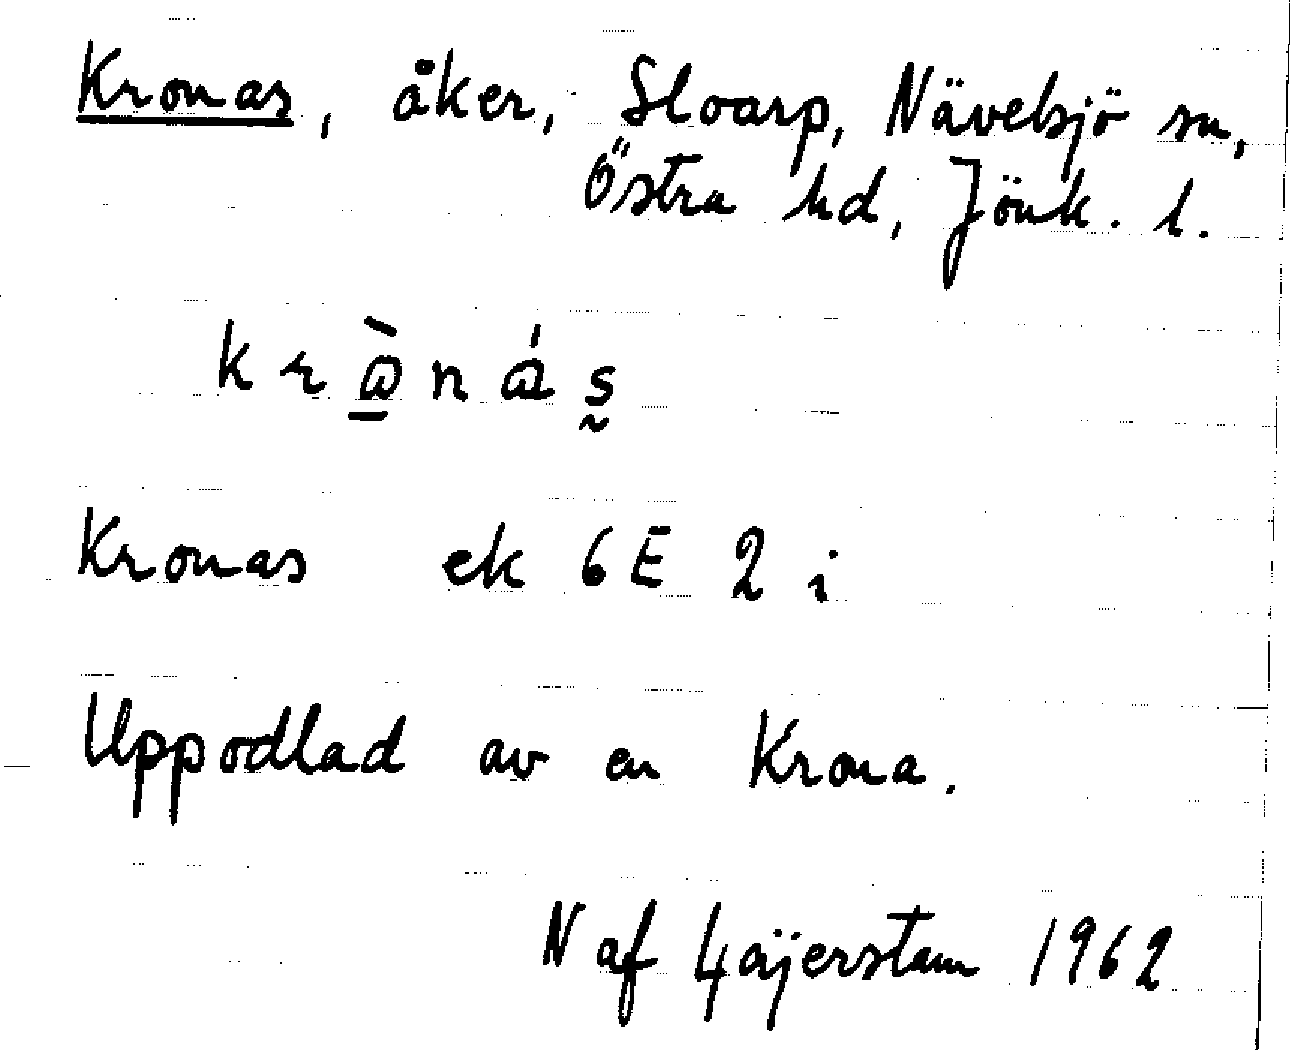 Kronas, åker, Sloarp, Nävelsjö sn,
Östra hd, Jönk. l.
Kronas ek 6E 2 i
Uppodlad av en Krona.
N af Geijerstam 1962